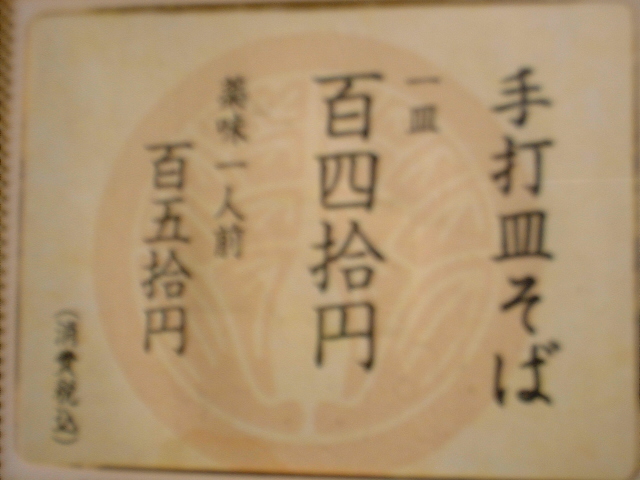 手打皿そば
一皿
百四拾円
薬味一人前
百五拾円
（消費税込）